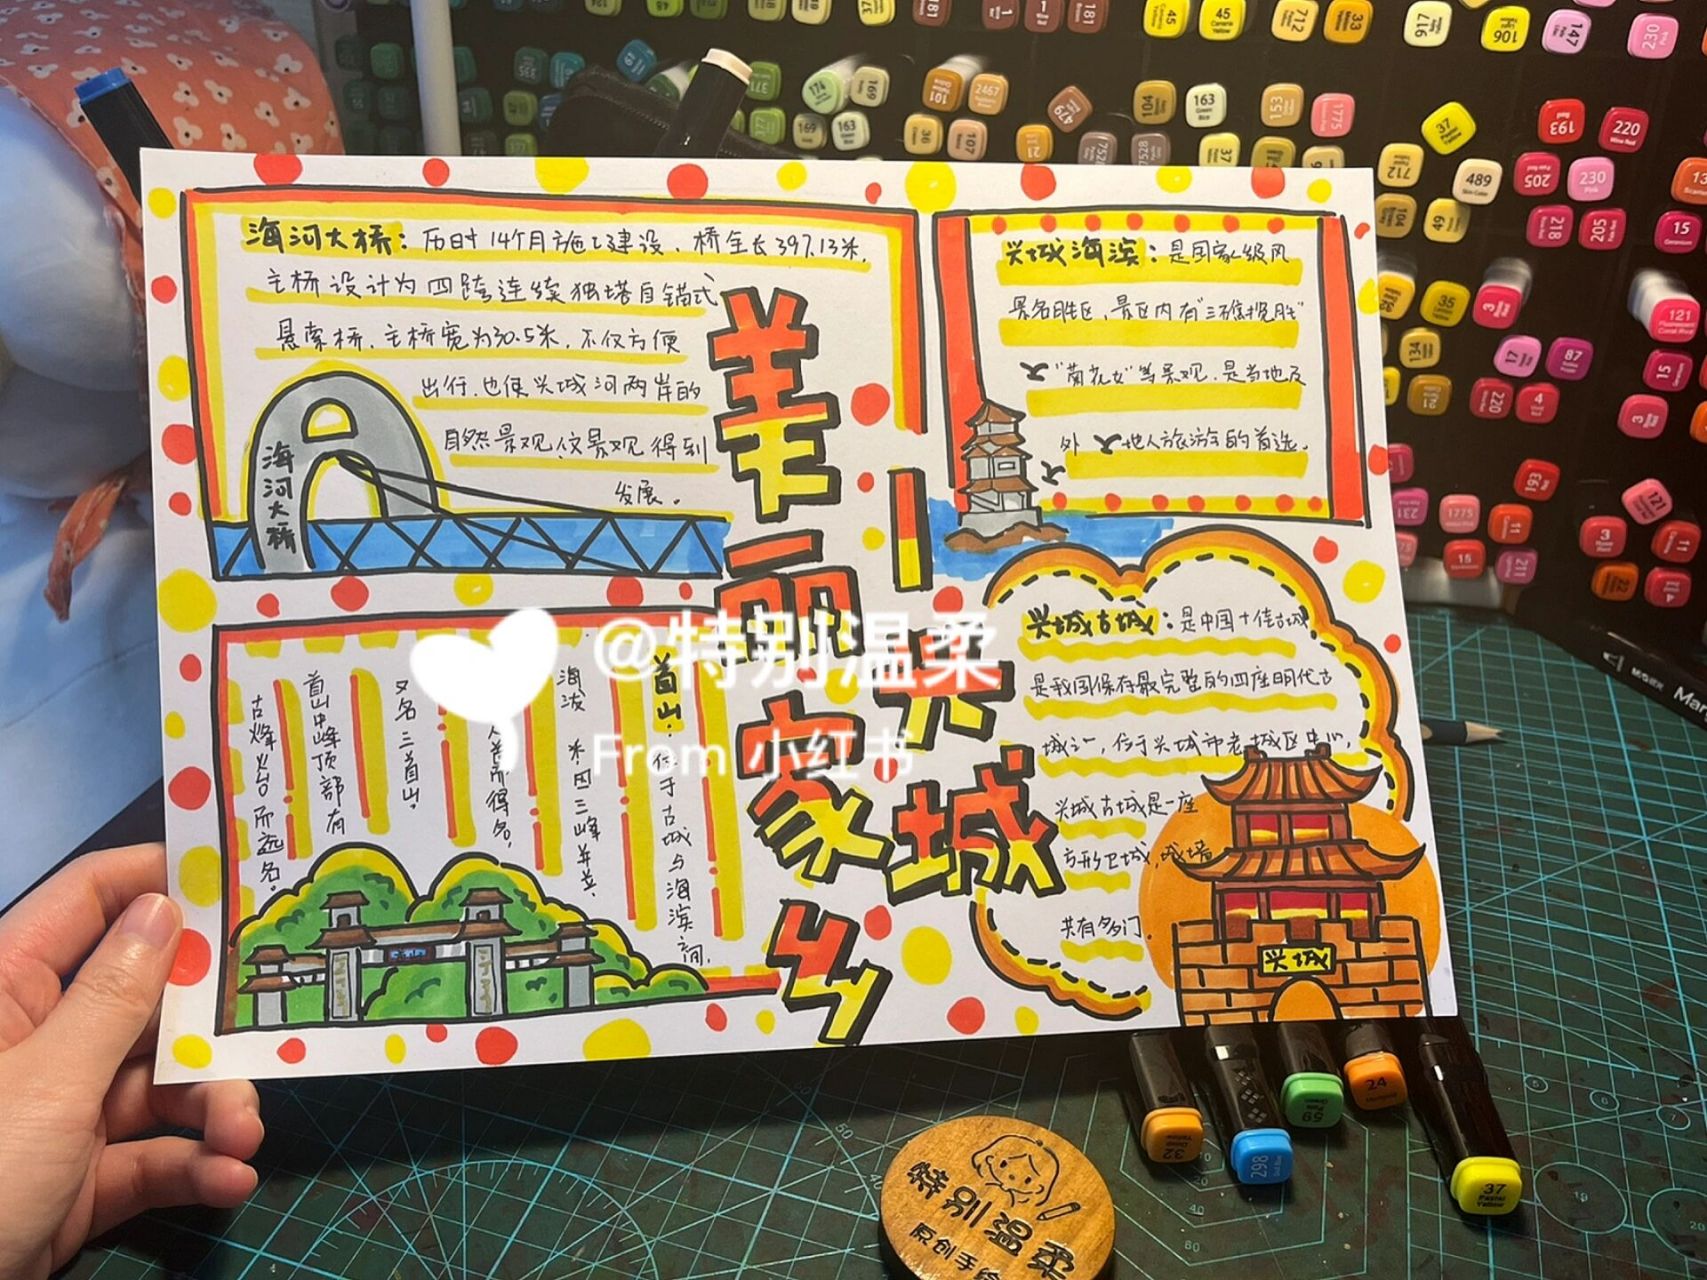 海河大桥：历时14个月施工建设，桥全长397.13米，
主桥设计为四跨连续独塔自锚式
悬索桥，主桥宽为30.5米，不仅方便
出行，也使兴城河两岸的
自然景观、人文景观得到
发展。
海河大桥
兴城海滨：是国家级风
景名胜区，景区内有“三礁揽胜”
“菊花女”等景观，是当地及
外地人旅游的首选。
美丽家乡
兴城
首山：位于古城与海滨之间，
海拔 米因三峰并立，
而得名，
又名三首山。
首山中峰顶部有
古烽火台而远名。
兴城古城：是中国十佳古城
是我国保存最完整的四座明代古
城之一，位于兴城市老城区中心，
兴城古城是一座
方形卫城，城墙
共有多门。
兴城
@特别温柔
From 小红书
特别温柔
原创手绘